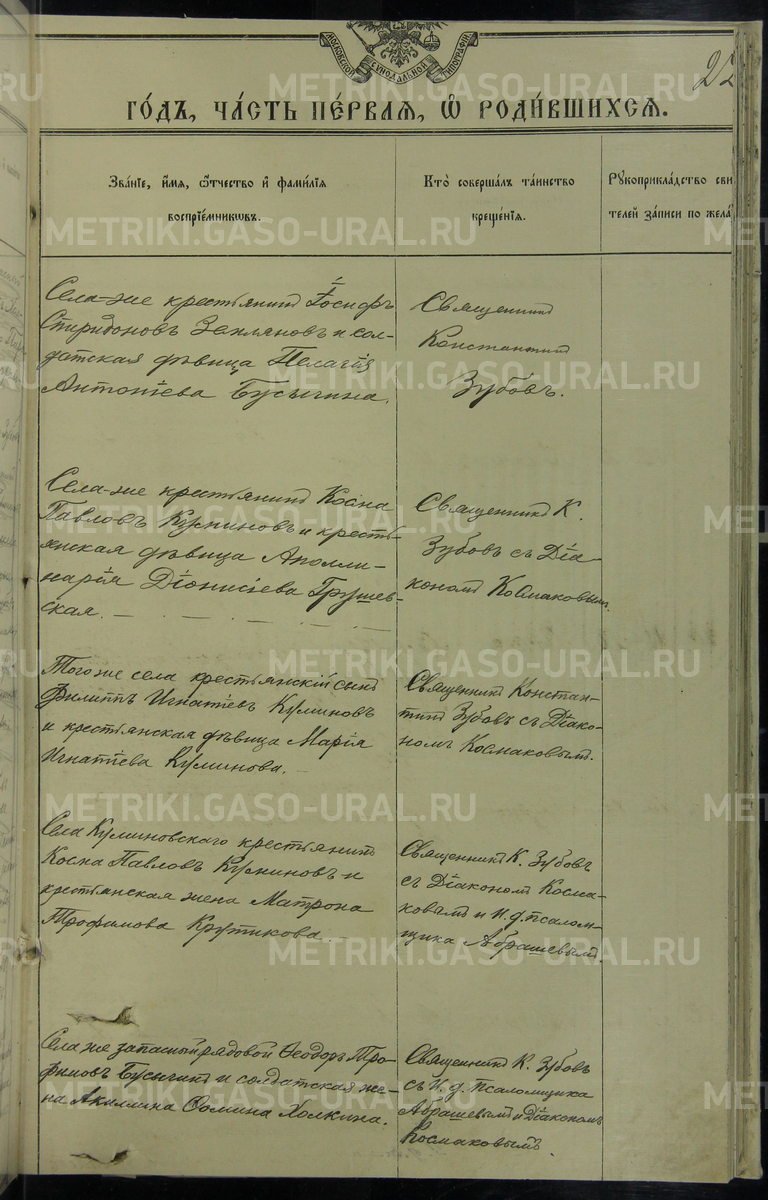 МОСКОВСКОЙ СѴНОДАЛЬНОЙ ТИПОГРАФІИ
22
ГО́ДЪ, ЧА́СТЬ ПЕ́РВАЯ, Ѡ҆ РОДИ́ВШИХСЯ.
Зва́нїе, и҆́мя, ѻ҆́тчество и҆ фами́лїя
воспрїе́мникѡвъ.
Кто̀ соверша́лъ та́инство
креще́нїя.
Рꙋкоприкла́дство сви
те́лей за́писи по жела́
Села-же крестьянинъ Іосифъ
Спиридоновъ Земляновъ и сол-
датская дѣвица Пелагія
Антоніева Бусыгина.
Священникъ
Константинъ
Зубовъ.
Села-же крестьянинъ Косма
Павловъ Куминовъ и кресть-
янская дѣвица Аполли-
нарія Діонисіева Грушев-
ская.
Священникъ К.
Зубовъ съ Діа-
кономъ Космаковымъ.
Того же села крестьянскій сынъ
Филиппъ Игнатіевъ Куминовъ
и крестьянская дѣвица Марія
Игнатіева Куминова.
Священникъ Констан-
тинъ Зубовъ съ Діако-
номъ Космаковымъ.
Села Куминовскаго крестьянинъ
Косма Павловъ Куминовъ и
крестьянская жена Матрона
Трофимова Крутикова.
Священникъ К. Зубовъ
съ Діакономъ Косма-
ковымъ и И. д. псалом-
щика Абрашевымъ.
Села же запасный рядовой Ѳеодоръ Тро-
фимовъ Бусыгинъ и солдатская же-
на Акилина Ѳомина Холкина.
Священникъ К. Зубовъ
съ И. д. псаломщика
Абрашевымъ и Діакономъ
Космаковымъ.
METRIKI.GASO-URAL.RU